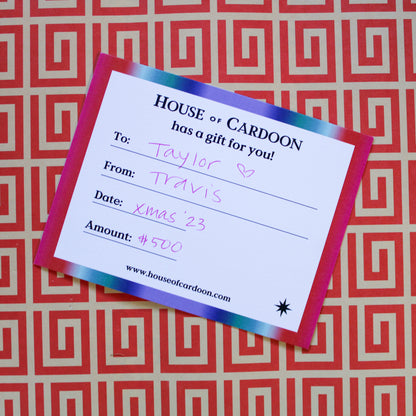 HOUSE OF CARDOON
has a gift for you!
To: Taylor ♡
From: Travis
Date: xmas '23
Amount: $500
www.houseofcardoon.com